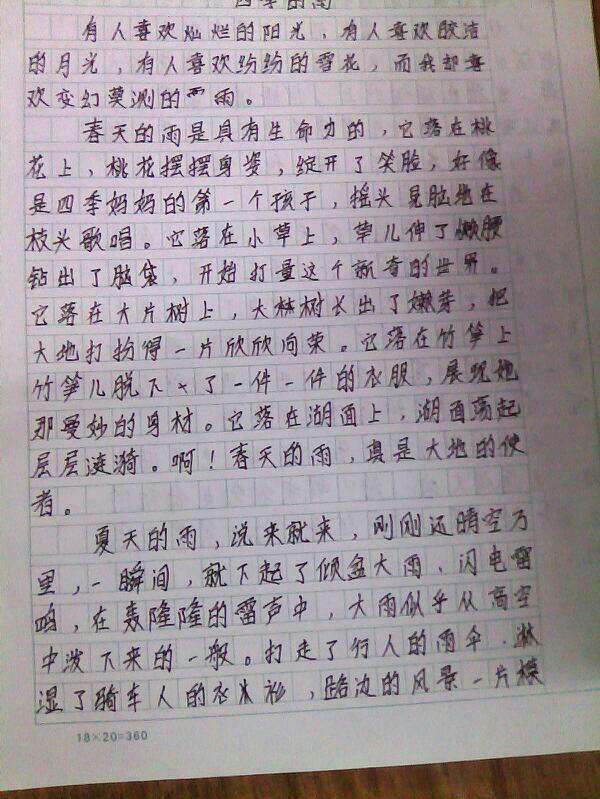 四季的雨
有人喜欢灿烂的阳光，有人喜欢皎洁
的月光，有人喜欢纷纷的雪花，而我却喜
欢变幻莫测的雨。
春天的雨是具有生命力的，它落在桃
花上，桃花摆摆身姿，绽开了笑脸，好像
是四季妈妈的第一个孩子，摇头晃脑地在
枝头歌唱。它落在小草上，草儿伸了懒腰
钻出了脑袋，开始打量这个新奇的世界。
它落在大片树上，大林树长出了嫩芽，把
大地打扮得一片欣欣向荣。它落在竹笋上
竹笋儿脱下了一件一件的衣服，展现她
那曼妙的身材。它落在湖面上，湖面荡起
层层涟漪。啊！春天的雨，真是大地的使
者。
夏天的雨，说来就来，刚刚还晴空万
里，一瞬间，就下起了倾盆大雨、闪电雷
鸣，在轰隆隆的雷声中，大雨似乎从高空
中泼下来的一般。打走了行人的雨伞，淋
湿了骑车人的衣衫，路边的风景一片模
18×20=360